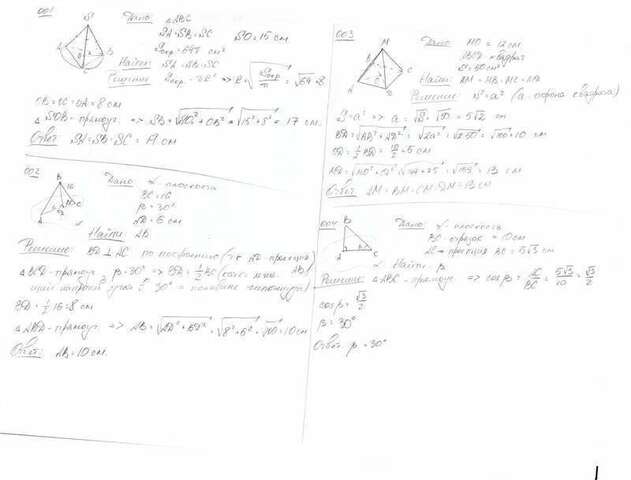 001
Дано: △ABC
SA=SB=SC SO=15 см
Sокр=64π см²
Найти: SA=SB=SC
Решение: Sокр=πR² => R=√Sокр/π=√64=8
OB=OC=OA=8 см
△SOB-прямоуг. => SB=√SO²+OB²=√15²+8²=17 см
Ответ: SA=SB=SC=17 см
002
Дано: α-плоскость
BC=16
β=30°
AD=6 см
Найти: AB
Решение: BD ⊥ DC по построению (т.к. AD проекция AB)
△BCD-прямоуг. β=30° => BD=½BC (катет лежащий напротив угла в 30° = половине гипотенузы)
BD=½16=8 см
△ABD-прямоуг. => AB=√AD²+BD²=√8²+6²=√100=10 см
Ответ: AB=10 см.
003
Дано: MO=12 см
ABCD-квадрат
S=50 см²
Найти: AM=MB=MC=MD
Решение: S=a² (a-сторона квадрата)
S=a² => a=√S=√50=5√2 см
BD=√AB²+AD²=√2a²=√2·50=√100=10 см
OD=½BD=10/2=5 см
MD=√MO²+OD²=√144+25=√169=13 см
Ответ: AM=BM=CM=DM=13 см
004
Дано: α-плоскость
BC-отрезок=10 см
AC-проекция BC=5√3 см
Найти: β
Решение: △ABC-прямоуг. => cosβ=AC/BC=5√3/10=√3/2
cosβ=√3/2
β=30°
Ответ: β=30°